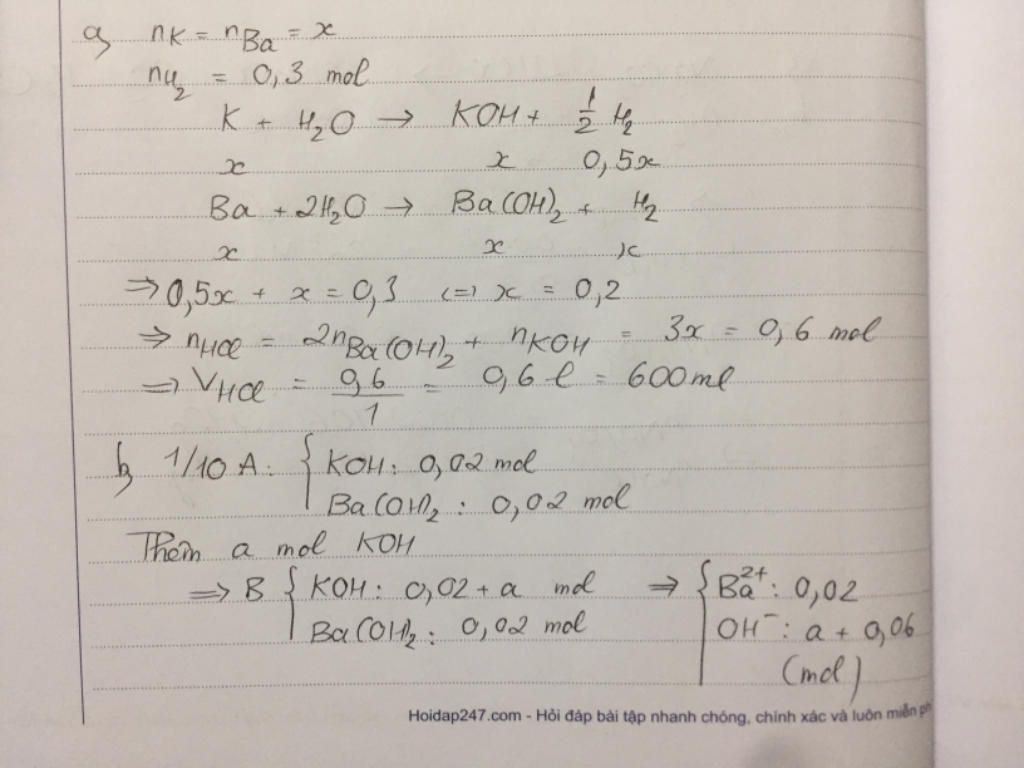 a, nK = nBa = x
nH2 = 0,3 mol
K + H2O → KOH + 1/2 H2
x x 0,5x
Ba + 2H2O → Ba(OH)2 + H2
x x x
⇒ 0,5x + x = 0,3 (=) x = 0,2
⇒ nHCl = 2nBa(OH)2 + nKOH = 3x = 0,6 mol
=) VHCl = 0,6/1 = 0,6 l = 600ml
b, 1/10 A: { KOH: 0,02 mol
Ba(OH)2: 0,02 mol
Thêm a mol KOH
⇒ B { KOH: 0,02 + a mol ⇒ { Ba2+: 0,02
Ba(OH)2: 0,02 mol OH-: a + 0,06
(mol)
Hoidap247.com - Hỏi đáp bài tập nhanh chóng, chính xác và luôn miễn ph